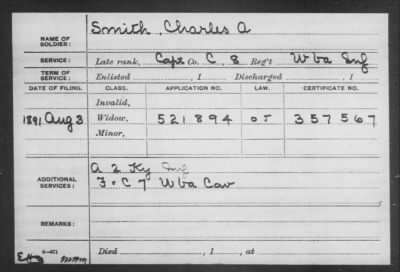 Smith, Charles A
NAME OF SOLDIER:
SERVICE: Late rank, Capt Co. C, 8 Reg't W Va Inf
TERM OF SERVICE: Enlisted , 1 Discharged , 1
DATE OF FILING. CLASS. APPLICATION NO. LAW. CERTIFICATE NO.
Invalid,
1891 Aug 3 Widow, 521894 357567
Minor,
ADDITIONAL SERVICES: A 2 Ky Inf
F & C 7 W Va Cav
REMARKS:
Died , 1 , at